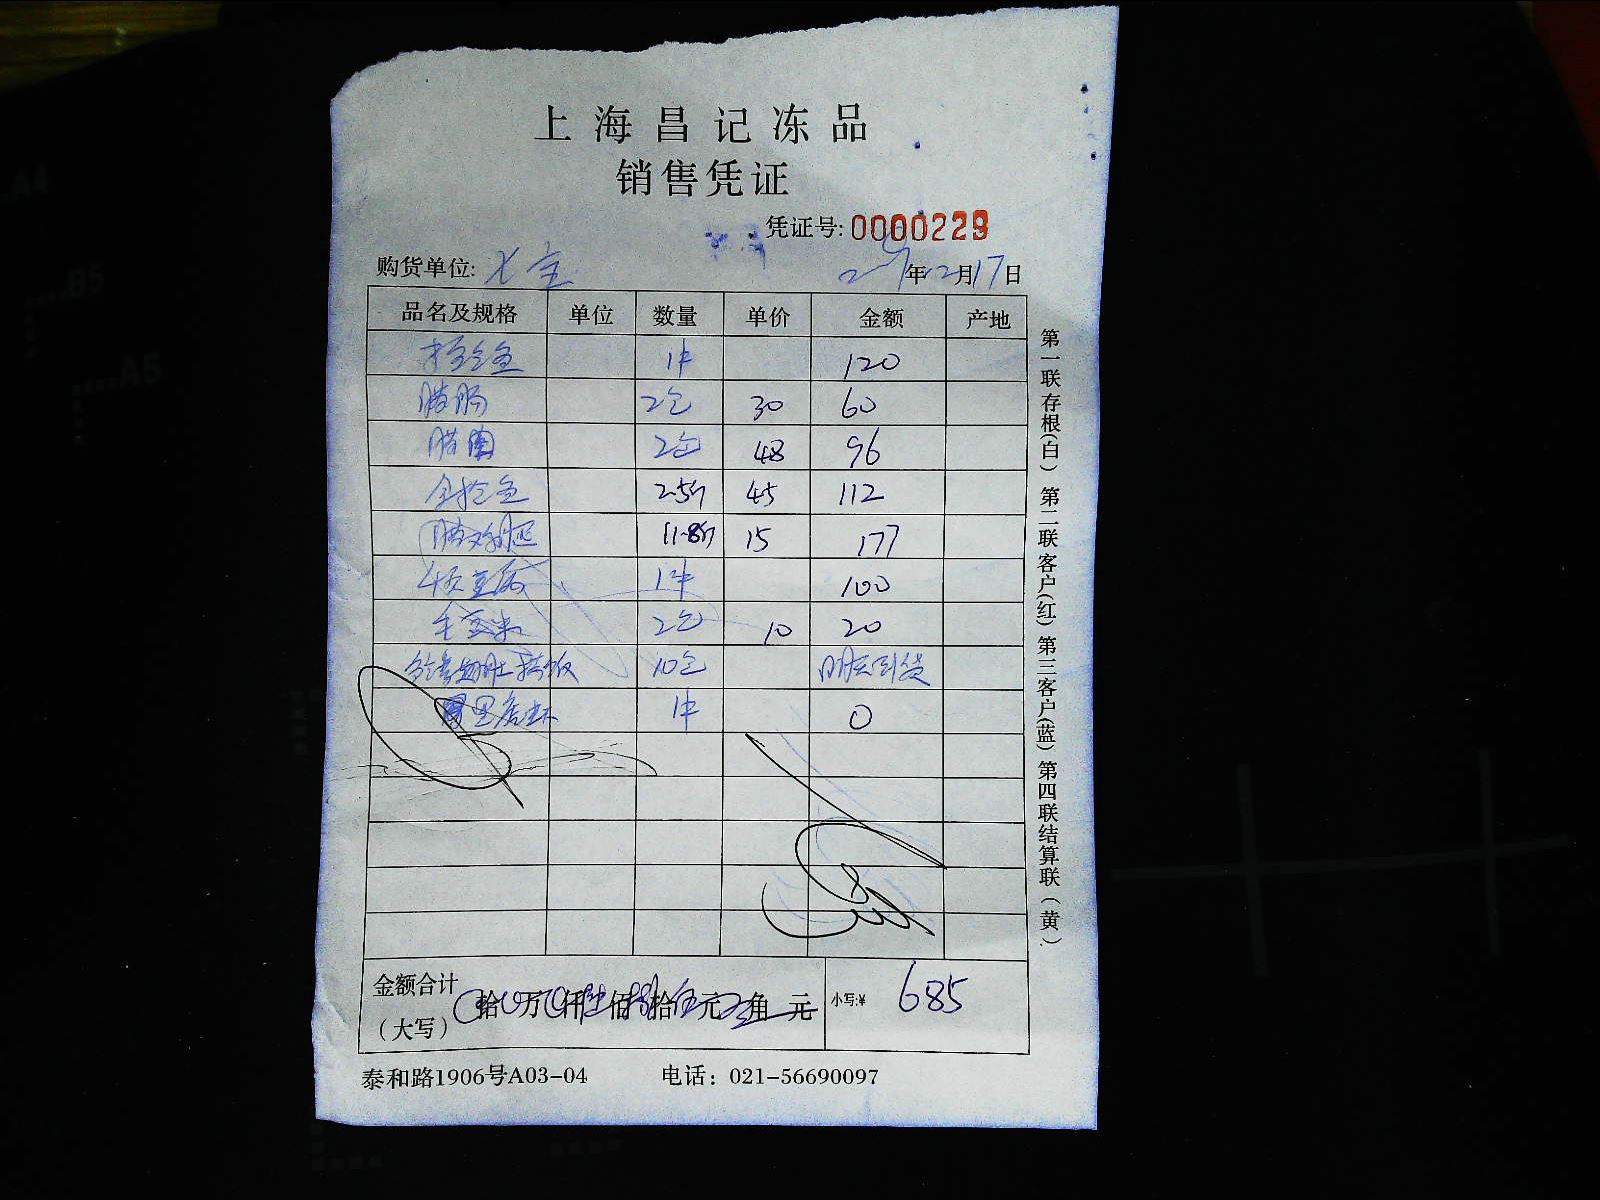 上海昌记冻品
销售凭证
凭证号: 0000229
购货单位: 七宝 年12月17日
品名及规格 单位 数量 单价 金额 产地
1件 120
腊肠 2包 30 60
腊肉 2包 48 96
2.5斤 45 112
腊鸡腿 11.8斤 15 177
千页豆腐 1件 100
毛豆米 2包 10 20
10包 明天到货
1件 0
金额合计(大写) 拾 万 仟陆佰捌拾伍元 角 元 小写:¥ 685
泰和路1906号A03-04 电话: 021-56690097
第一联存根(白) 第二联客户(红) 第三客户(蓝) 第四联结算联(黄)